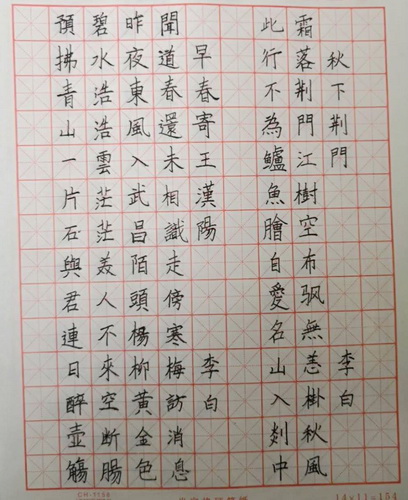 秋下荊門 李白
霜落荊門江樹空布無恙掛秋風
此行不為鱸魚膾自愛名山入剡中
早春寄王漢陽 李白
聞道春還未相識走傍寒梅訪消息
昨夜東風入武昌陌頭楊柳黃金色
碧水浩浩雲茫茫美人不來空斷腸
預拂青山一片石與君連日醉壺觴
14×11=154